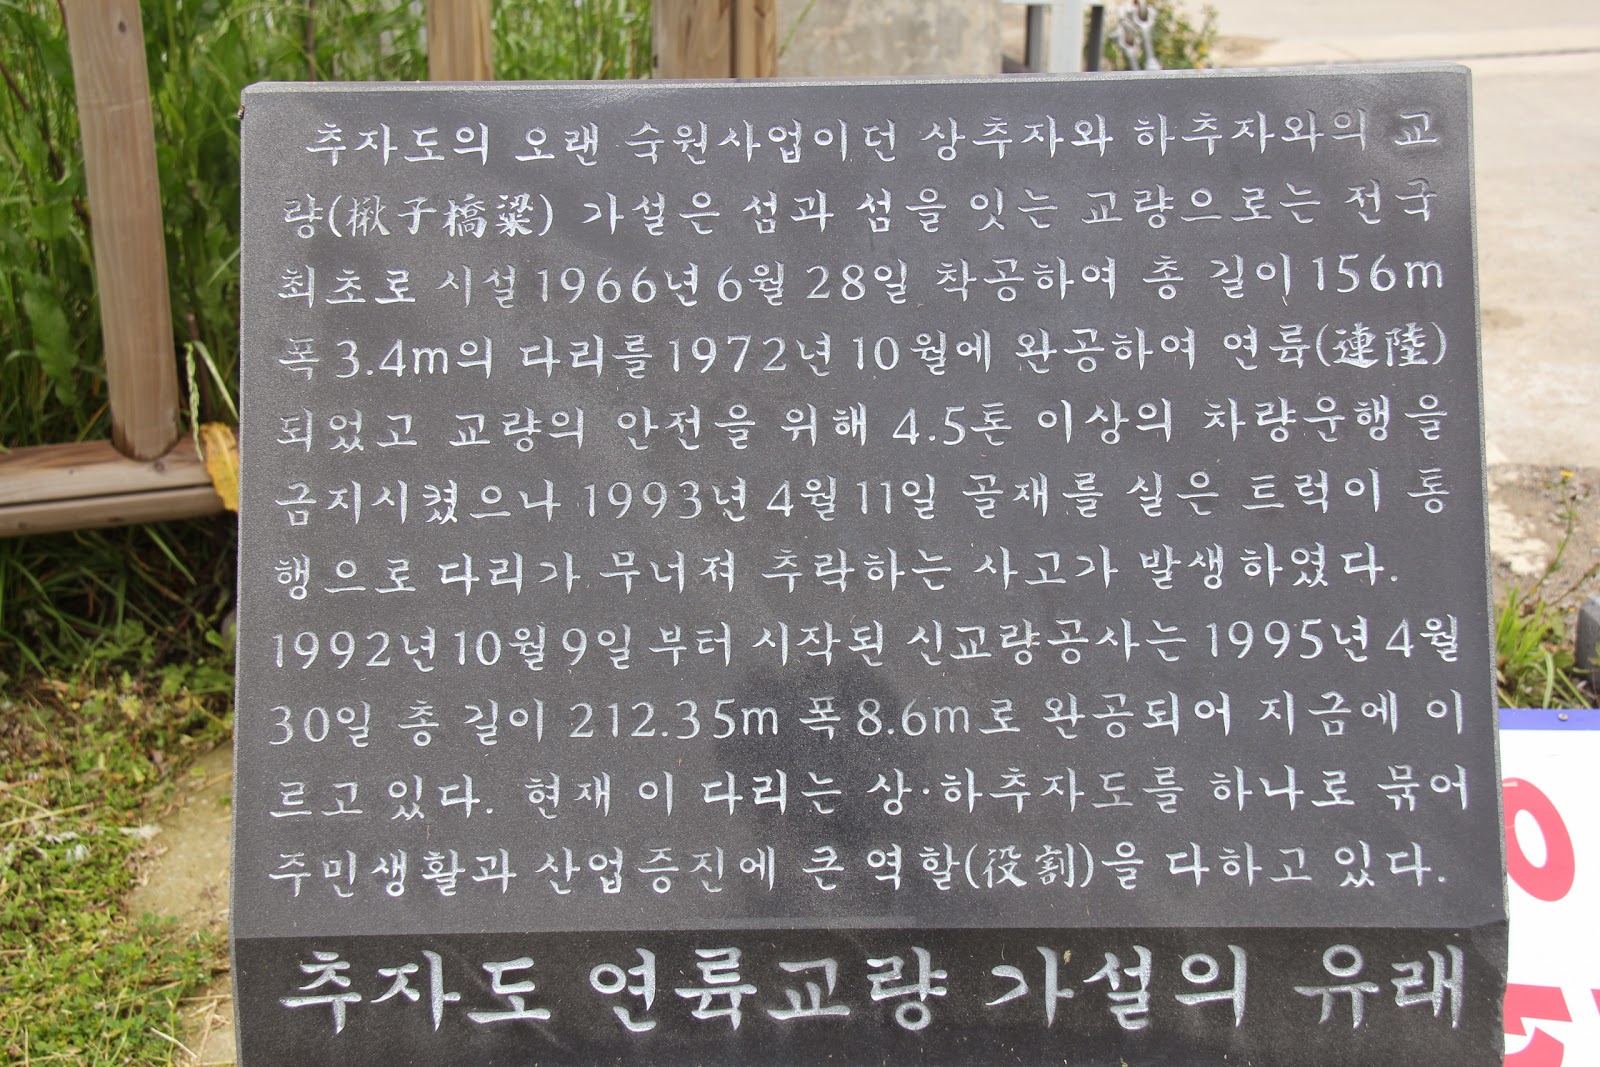 추자도의 오랜 숙원사업이던 상추자와 하추자와의 교
량(楸子橋粱) 가설은 섬과 섬을 잇는 교량으로는 전국
최초로 시설 1966년 6월 28일 착공하여 총 길이 156m
폭 3.4m의 다리를 1972년 10월에 완공하여 연륙(連陸)
되었고 교량의 안전을 위해 4.5톤 이상의 차량운행을
금지시켰으나 1993년 4월 11일 골재를 실은 트럭이 통
행으로 다리가 무너져 추락하는 사고가 발생하였다.
1992년 10월 9일 부터 시작된 신교량공사는 1995년 4월
30일 총 길이 212.35m 폭 8.6m로 완공되어 지금에 이
르고 있다. 현재 이 다리는 상·하추자도를 하나로 묶어
주민생활과 산업증진에 큰 역할(役割)을 다하고 있다.
추자도 연륙교량 가설의 유래